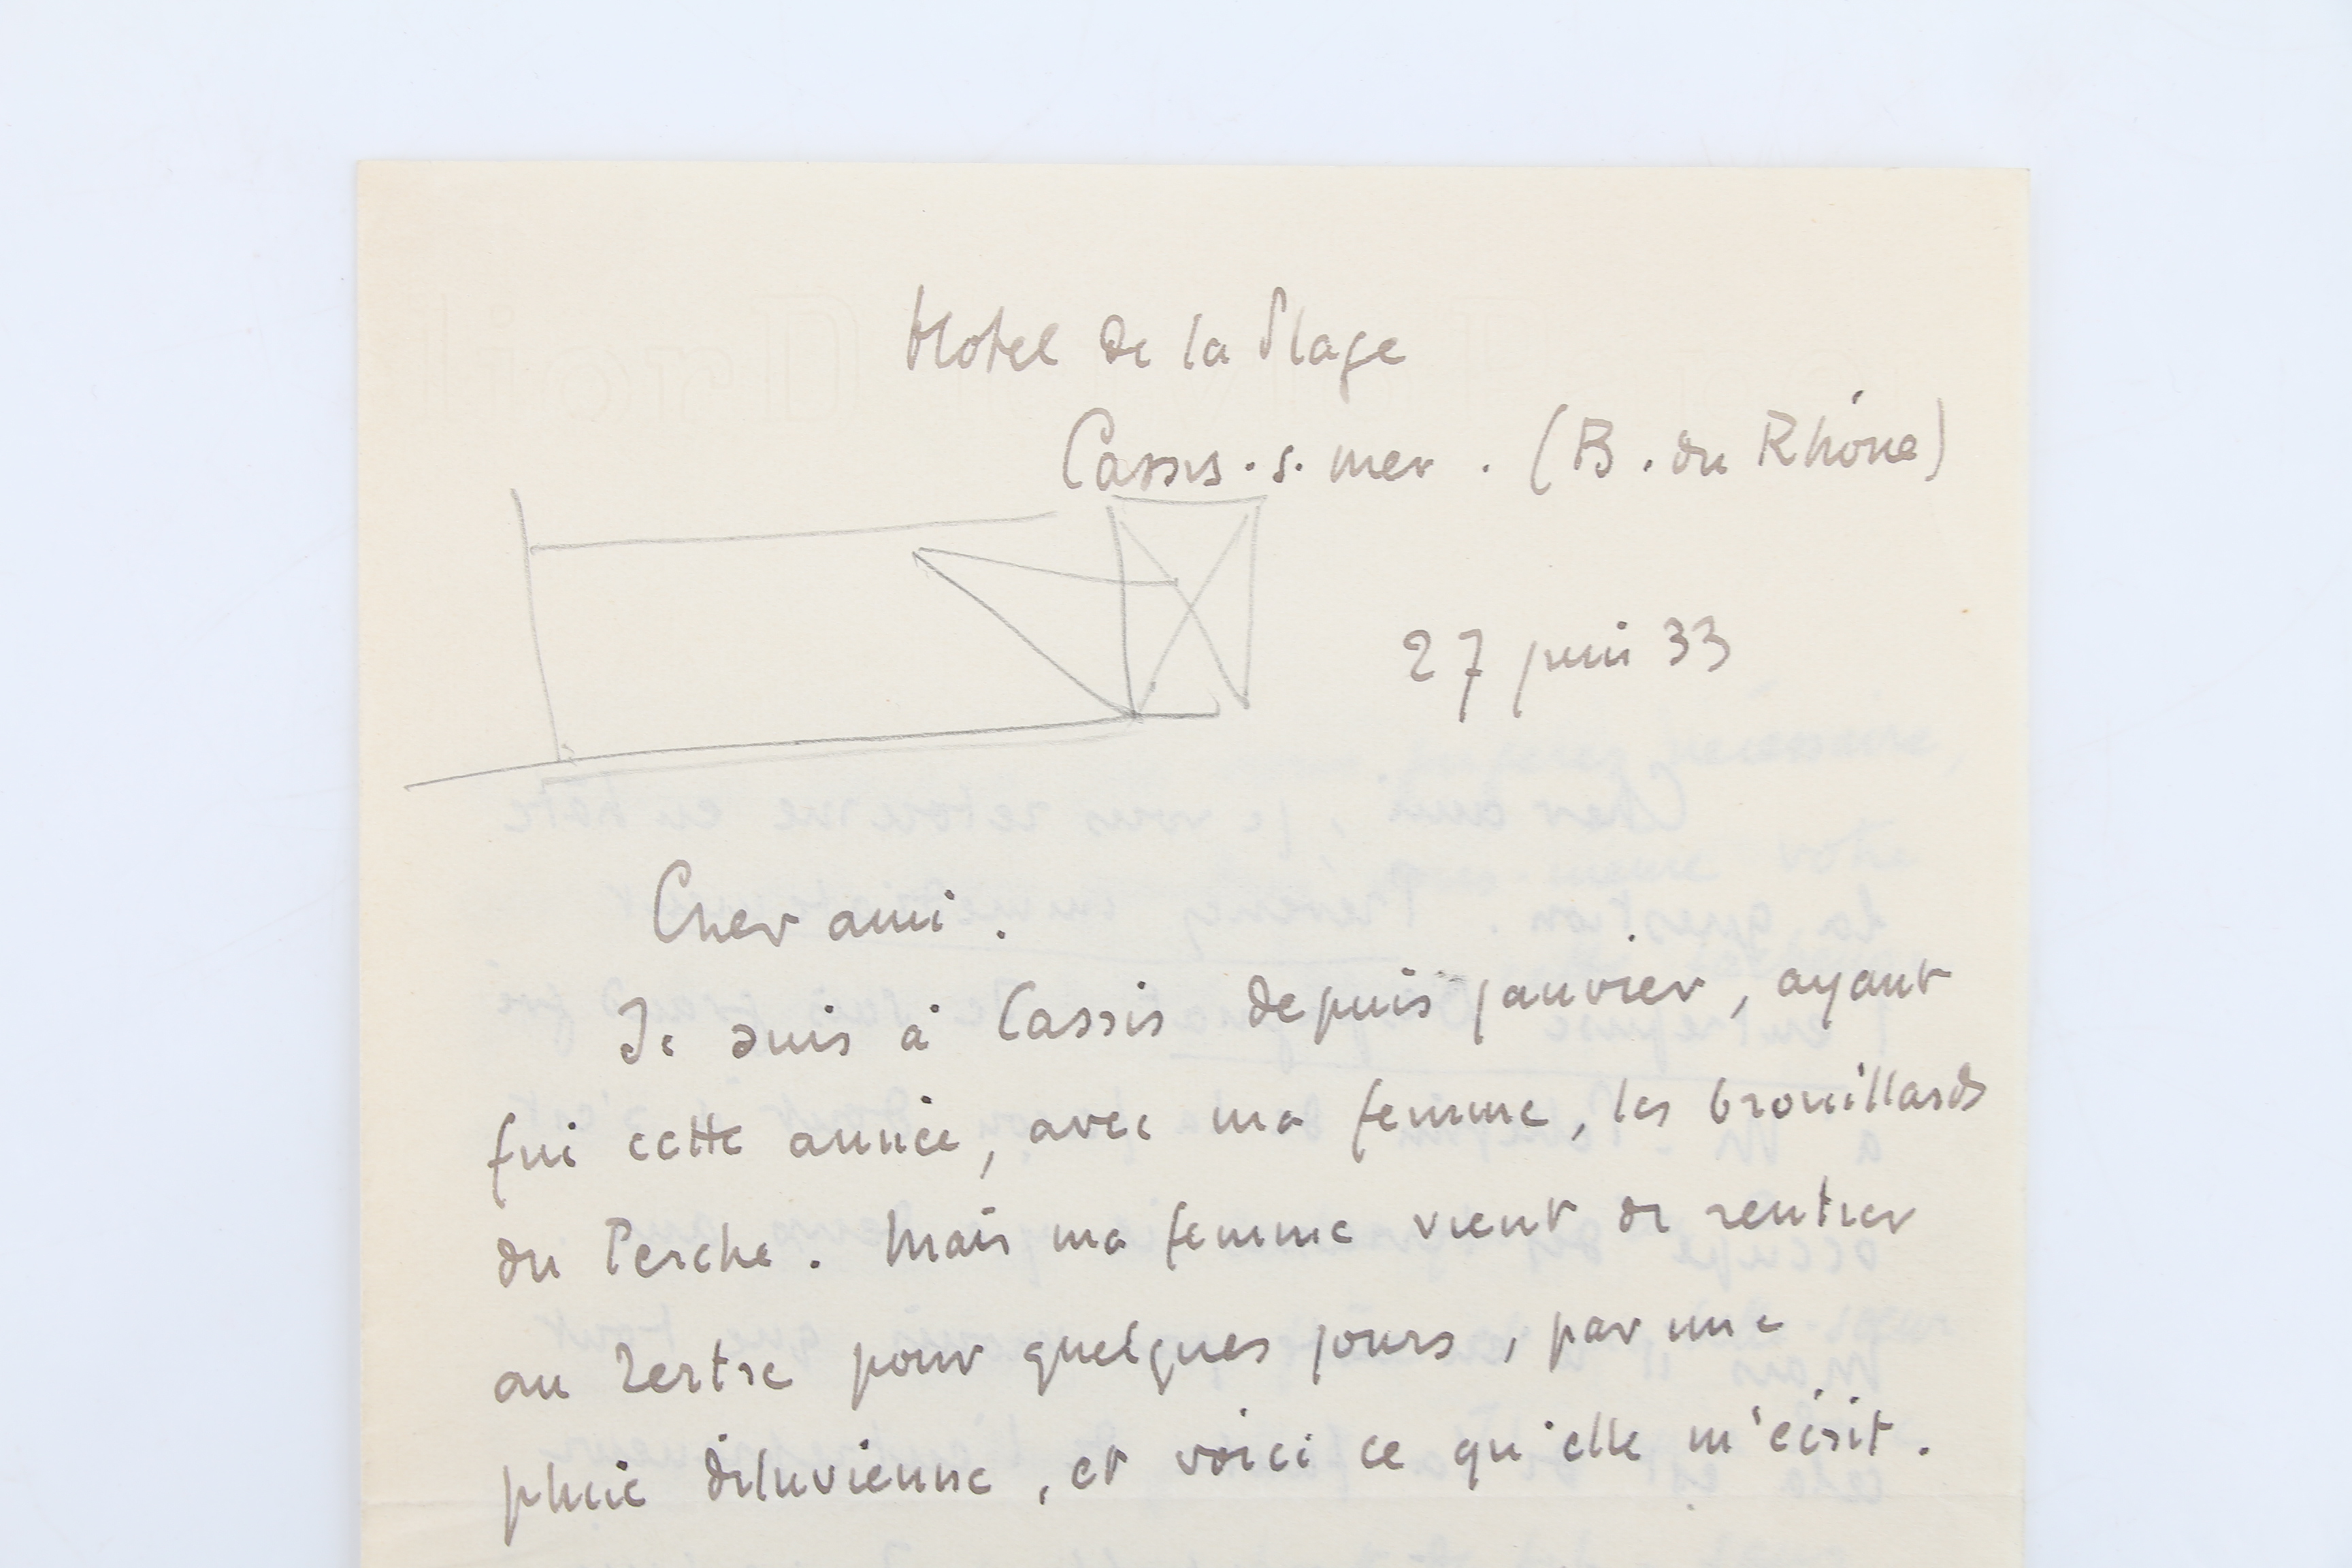 Hotel de la Plage
Cassis. s. mer. (B. du Rhône)
27 juin 33
Cher ami.
Je suis à Cassis depuis janvier, ayant
fui cette année, avec ma femme, les brouillards
du Perche. Mais ma femme vient de rentrer
au Tertre pour quelques jours, par une
pluie diluvienne, et voici ce qu'elle m'écrit.